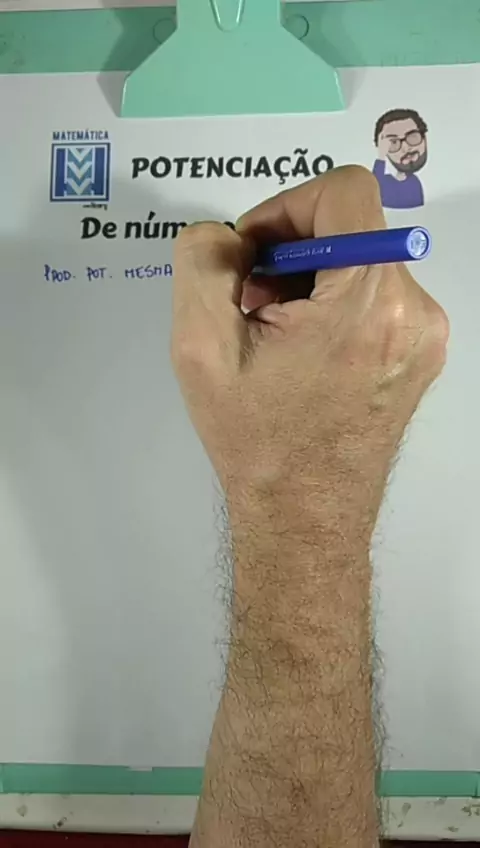 MATEMÁTICA
POTENCIAÇÃO
De núm
PROD. POT. MESMA